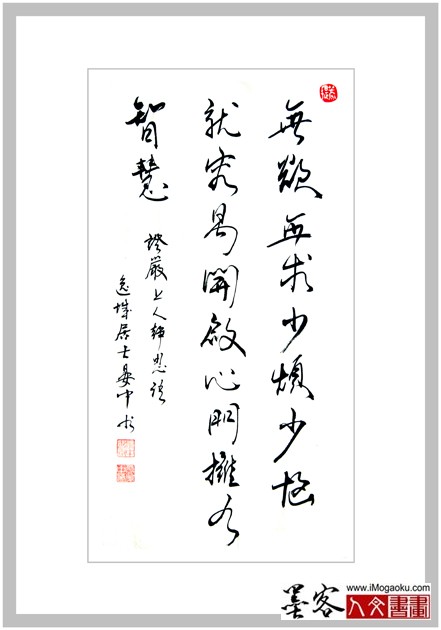 無欲無求少煩少惱
就容易開啟心門擁有
智慧
證嚴上人靜思語
居士晏中书
墨客
www.iMogaoku.com
人文書畫